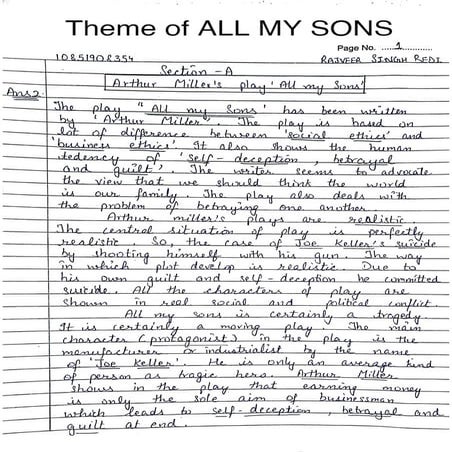 Theme of ALL MY SONS
Page No. 1
10851908354 RAJVEER SINGH BEDI
Section - A
Arthur Miller's play 'All my Sons'
Ans2. The play "All my Sons" has been written
by "Arthur Miller". The play is based on
lot of difference between 'social ethics' and
'business ethics'. It also shows the human
tedency of 'self-deception, betrayal
and guilt'. The writer seems to advocate
the view that we should think the world
is our family. The play also deals with
the problem of betraying one another.
Arthur miller's plays are realistic
The central situation of play is perfectly
realistic. So, the case of Joe Keller's suicide
by shooting himself with his gun. The way
in which plot develop is realistic. Due to
his own guilt and self-deception he committed
suicide. All the characters of play are
shown in real social and political conflict.
All my sons is certainly a tragedy.
It is certainly a moving play. The main
character (protagonist) in the play is the
manufacturer or industrialist by the name
of 'Joe Keller'. He is only an average kind
of person as tragic hero. Arthur Miller
shows in the play that earning money
is only the sole aim of businessman
which leads to self-deception, betrayal and
guilt at end.